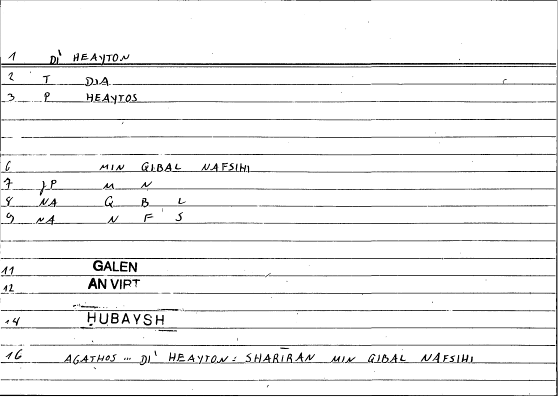 1 DI' HEAYTON
2 T DIA
3 P HEAYTOS
6 MIN GIBAL NAFSIHI
7 JP M N
8 NA G B L
9 NA N F S
11 GALEN
12 AN VIRT
14 ḤUBAYSH
16 AGATHOS ... DI' HEAYTON: SHARĪRAN MIN GIBAL NAFSIHI